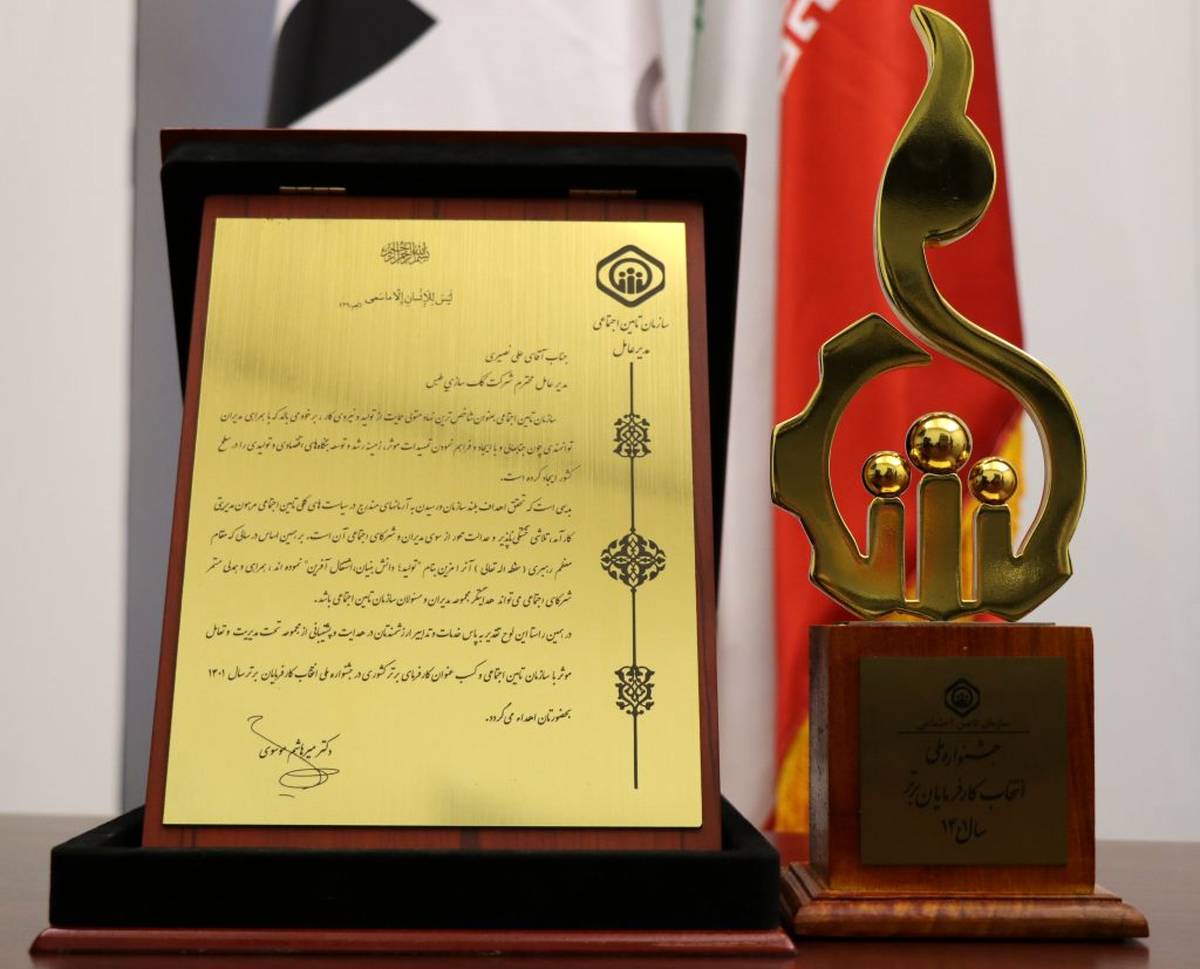 بسم الله الرحمن الرحیم
لَیسَ لِلْإِنْسانِ إِلّا ما سَعی
سازمان تامین اجتماعی
مدیر عامل
جناب آقای علی نصیری
مدیر عامل محترم شرکت کک سازی طبس
سازمان تامین اجتماعی بعنوان شاخص ترین نهاد متولی حمایت از تولید و نیروی کار ، بر خود می بالد که با همراهی مدیران
توانمندی چون جنابعالی و با ایجاد و فراهم نمودن تمهیدات موثر، زمینه رشد و توسعه بنگاه‌های اقتصادی و تولیدی را در سطح
کشور ایجاد کرده است.
بدیهی است که تحقق اهداف بلند سازمان و رسیدن به آرمانهای مندرج در سیاست های کلی تامین اجتماعی مرهون مدیریتی
کارآمد، تلاشی خستگی ناپذیر و عدالت محور از سوی مدیران و شرکای اجتماعی آن است. بر همین اساس در سالی که مقام
معظم رهبری ( حفظه اله تعالی ) آنرا مزین بنام "تولید؛ دانش بنیان، اشتغال آفرین" نموده اند ، همراهی و همدلی مستمر
شرکای اجتماعی می تواند هدایتگر مجموعه مدیران و مسئولان سازمان تامین اجتماعی باشد.
در همین راستا این لوح تقدیر به پاس خدمات و تدابیر ارزشمندتان در هدایت و پشتیبانی از مجموعه تحت مدیریت و تعامل
موثر با سازمان تامین اجتماعی و کسب عنوان کارفرمای برتر کشوری در جشنواره ملی انتخاب کارفرمایان برتر سال ۱۴۰۱
بحضورتان اهداء می گردد.
دکتر میرهاشم موسوی
سازمان تامین اجتماعی
جشنواره ملی
انتخاب کارفرمایان برتر
سال ۱۴۰۱